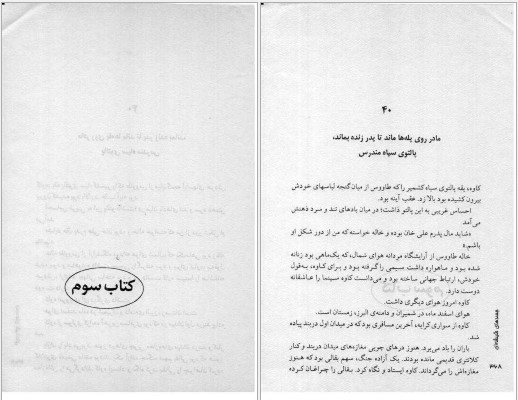 کتاب سوم
۴۰
مادر روی پله‌ها ماند تا پدر زنده بماند،
پالتوی سیاه مندرس
کاوه، یقه پالتوی سیاه کشمیر راکه طاووس از میان گنجه لباسهای خودش
بیرون کشیده بود بالا زد. عقب آینه بود.
احساس غریبی به این پالتو داشت؛ در میان بادهای تند و سرد ذهنش
می‌آمد
«شاید مال پدرم علی خان بوده و خاله خواسته که من از دور شکل او
باشم.»
خاله طاووس از آرایشگاه مردانه هوای شمال، که یک‌ماهی بود زنانه
شده بود و ماهواره داشت، سیمی را گرفته بود و برای کاوه، به‌قول
خودش، ارتباط جهانی ساخته بود و می‌دانست کاوه سینما را عاشقانه
دوست دارد.
کاوه امروز هوای دیگری داشت.
هوای اسفند ماه، در شمیران و دامنه‌ی البرز، زمستان است.
کاوه از سواری کرایه، آخرین مسافری بود که در میدان اول دربند پیاده
شد.
باران را باد می‌برد. هنوز درهای چوبی مغازه‌های میدان دربند و کنار
کلانتری قدیمی مانده بودند. یک آزاده جنگ، سهم بقالی بود که هنوز
مغازه‌اش را می‌گرداند. کاوه ایستاد و نگاه کرد. بقالی را چراغان کرده
۳۶۸